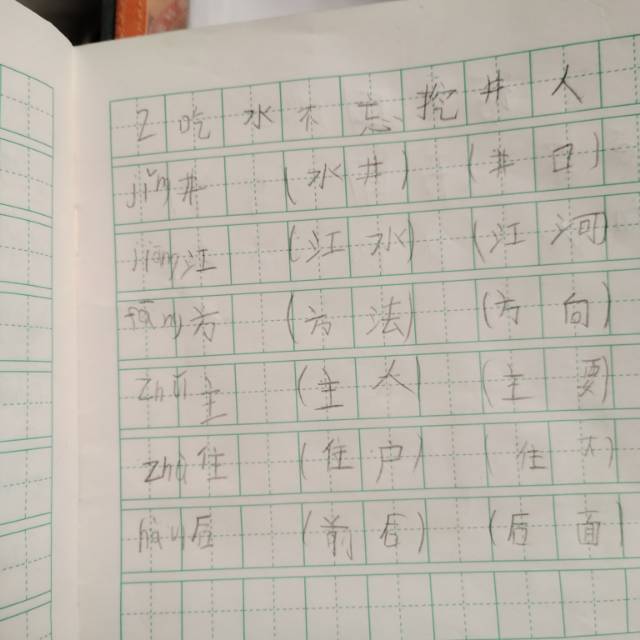 2 吃水不忘挖井人
jǐng 井 (水井) (井口)
jiāng 江 (江水) (江河)
fāng 方 (方法) (方向)
zhǔ 主 (主人) (主要)
zhù 住 (住户) (住
hòu 后 (前后) (后面)